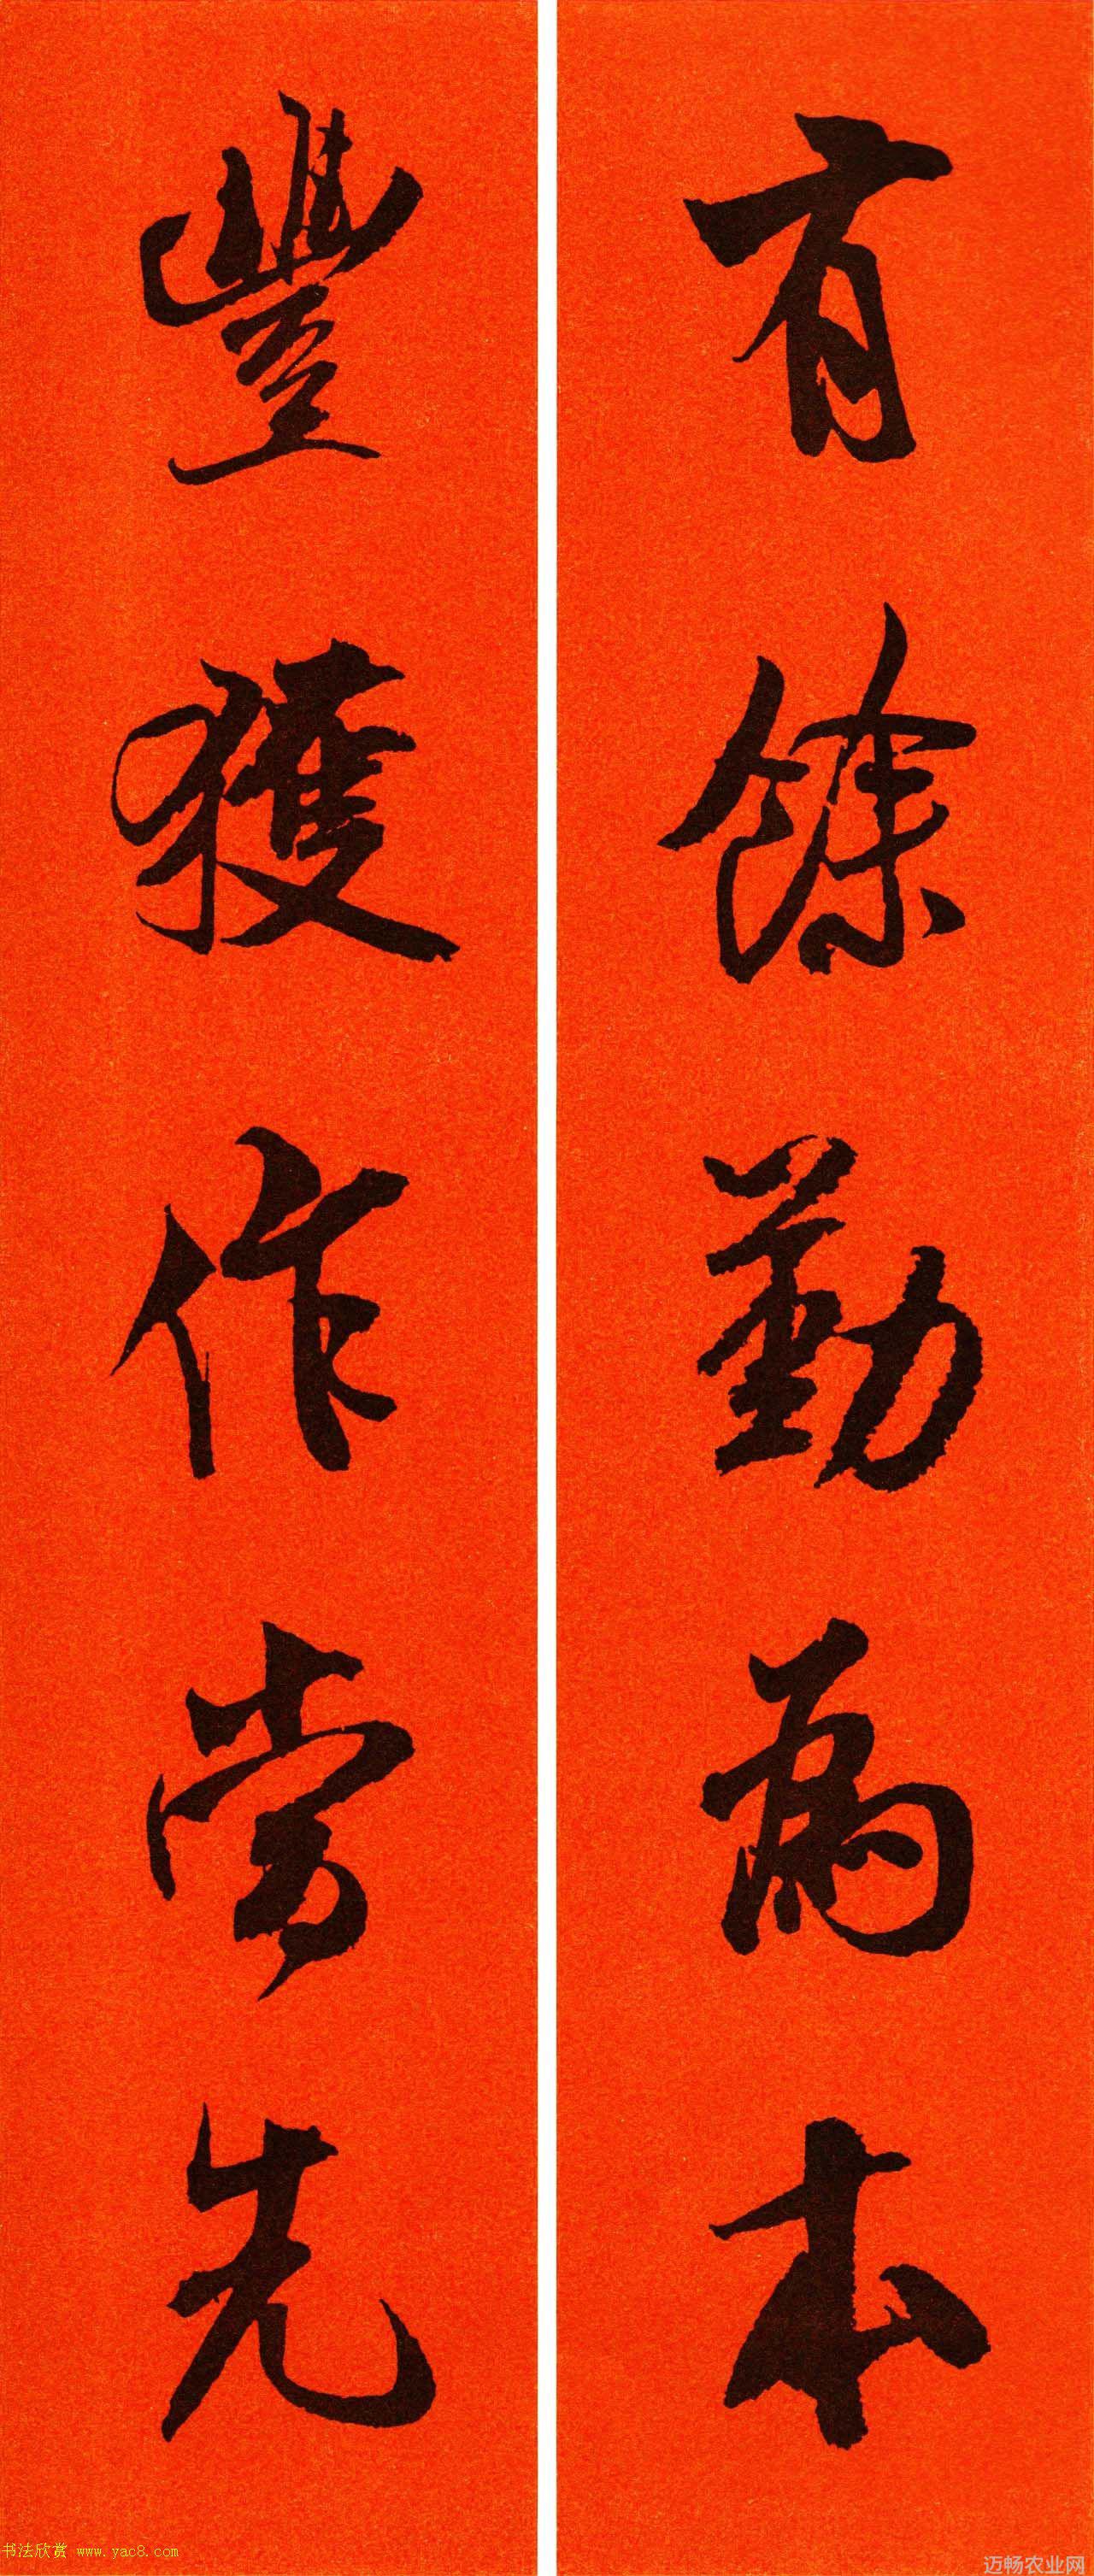 有餘勤為本
豐獲作當先
书法欣赏 www.yac8.com
迈畅农业网